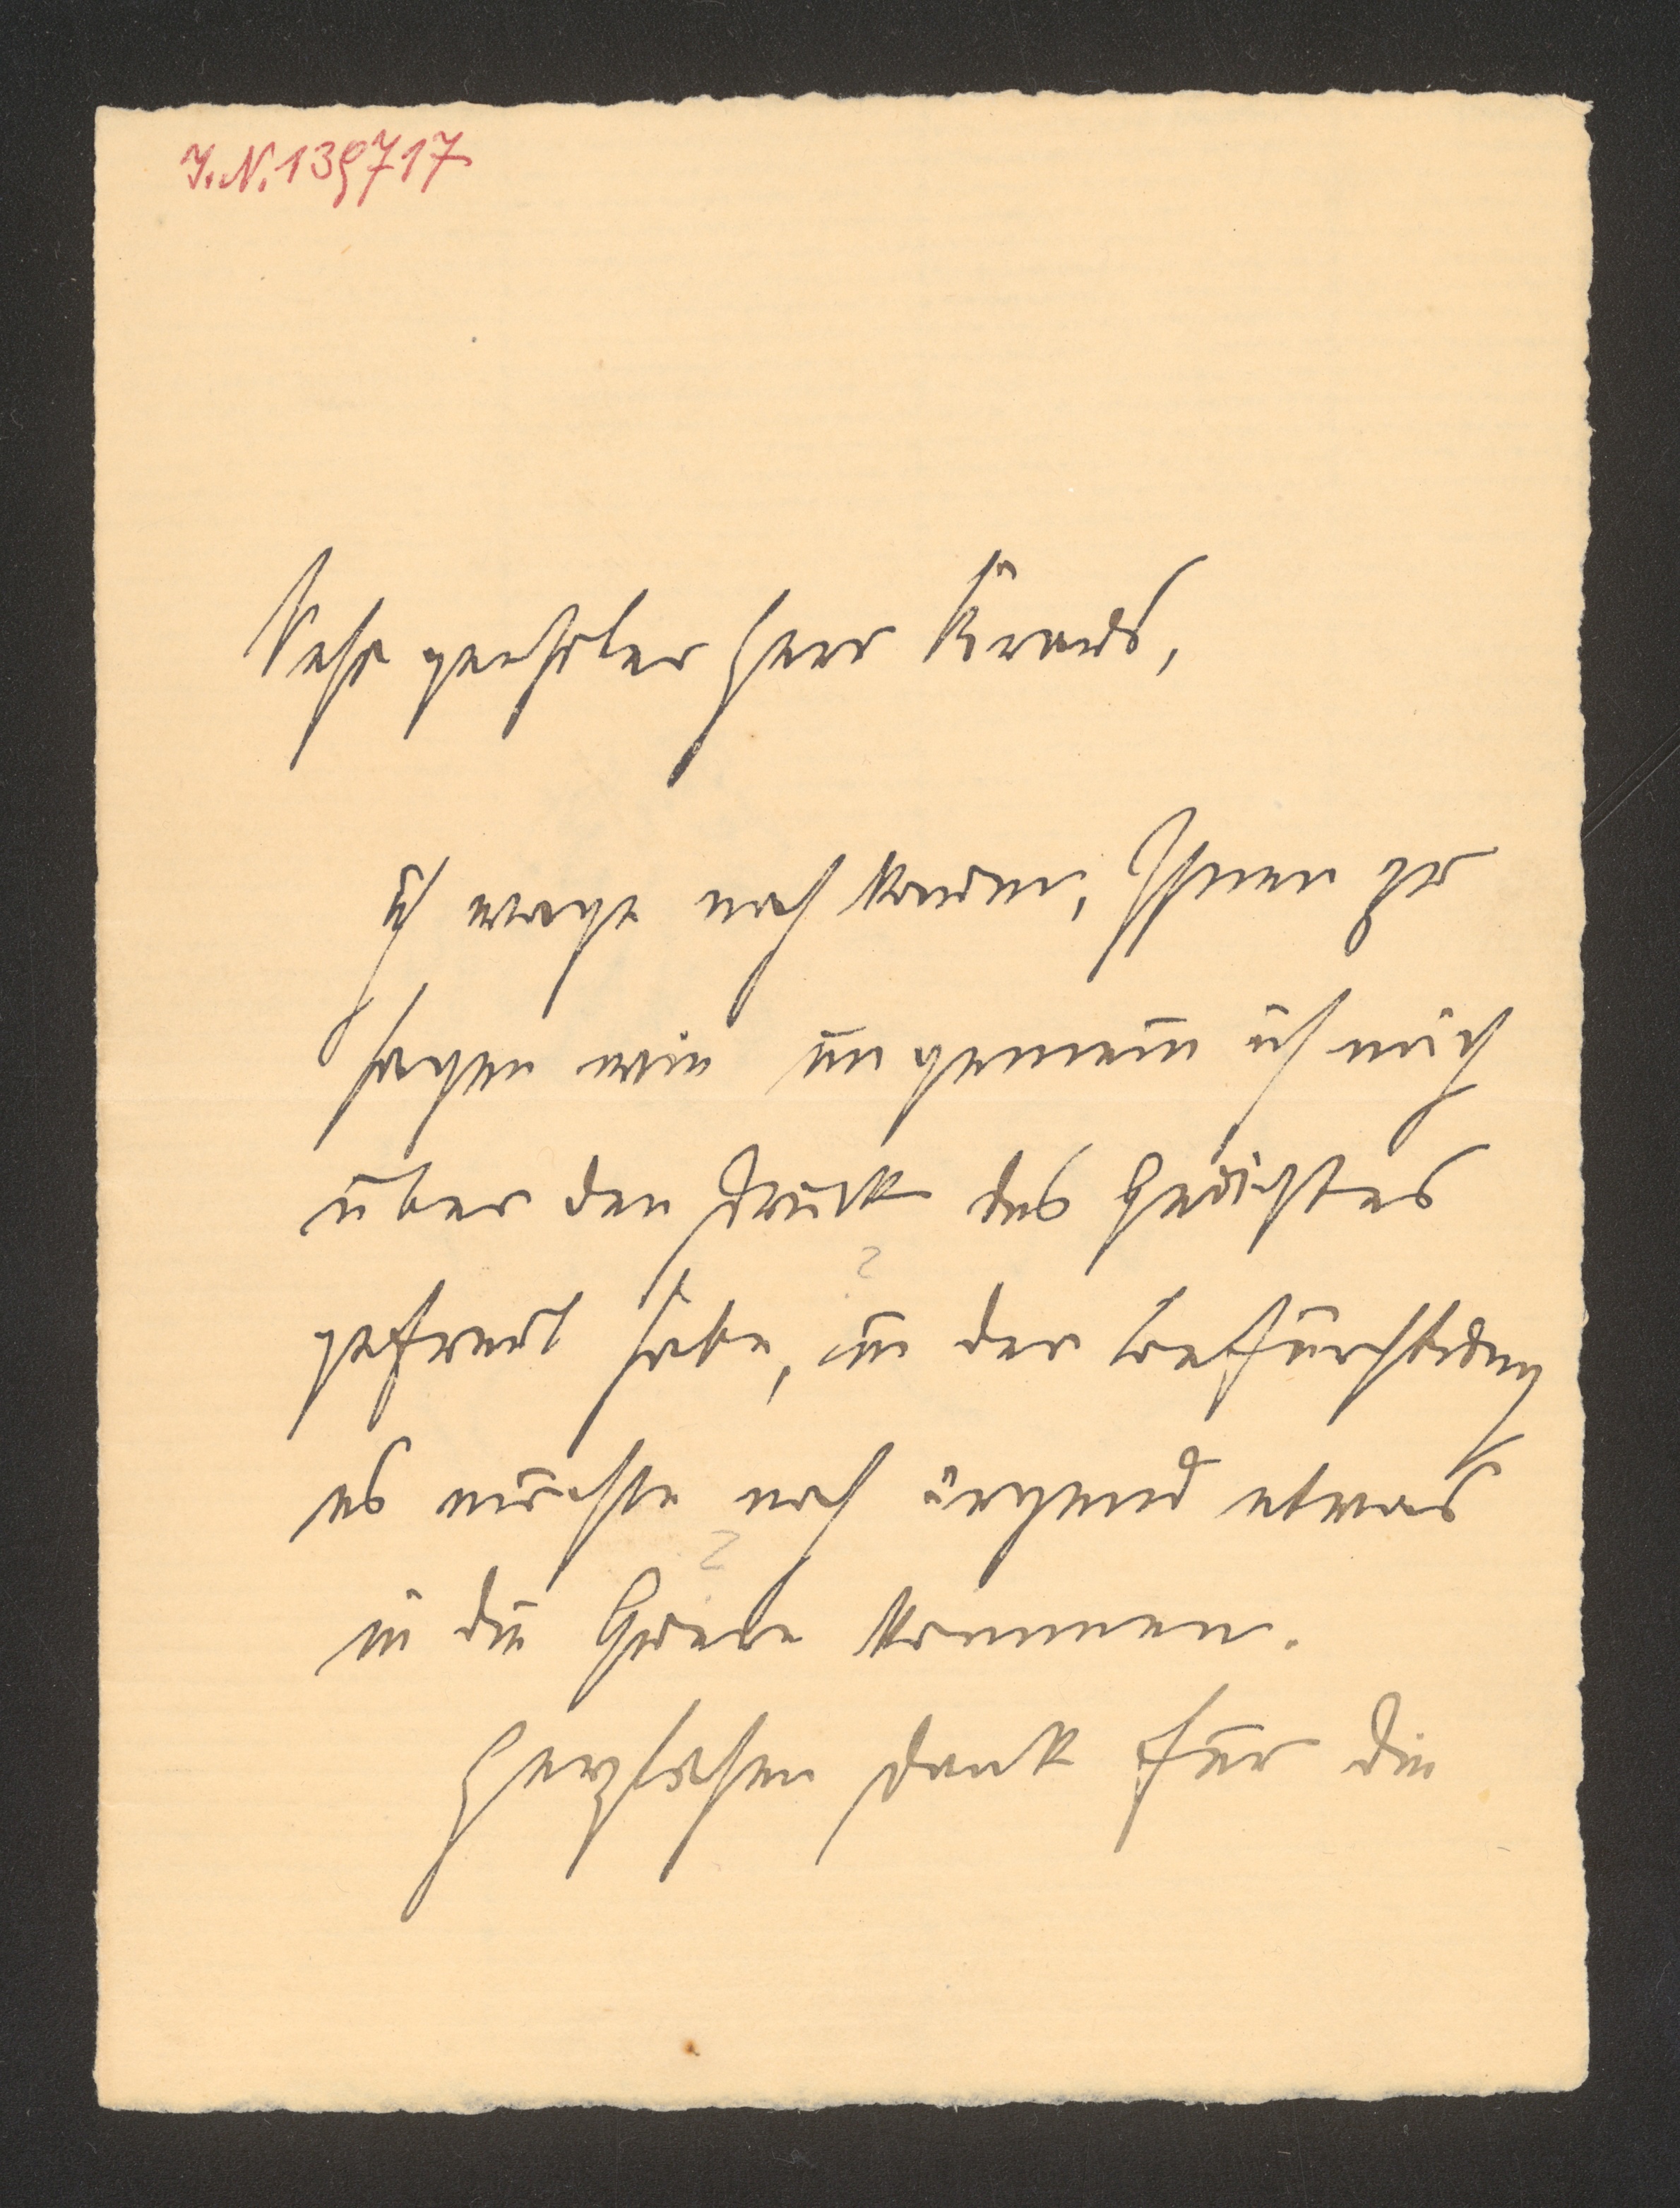 I.N. 139717
Sehr geehrter Herr Kraus,
ich wage noch kaum, Ihnen zu
sagen wie ungemein ich mich
über den Druck des Gedichtes
gefreut habe, in der Befürchtung
es möchte noch irgend etwas
in die Quere kommen.
Herzlichen Dank für die